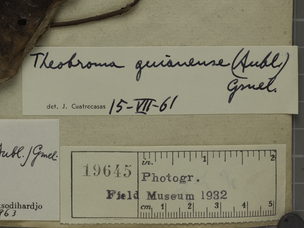 Theobroma guianense (Aubl.)
Gmel.
det. J. Cuatrecasas 15-VII-61
Aubl.) Gmel.
sodihardjo
963
19645
in. 1 2
Photogr.
Field Museum 1932
cm. 1 2 3 4 5